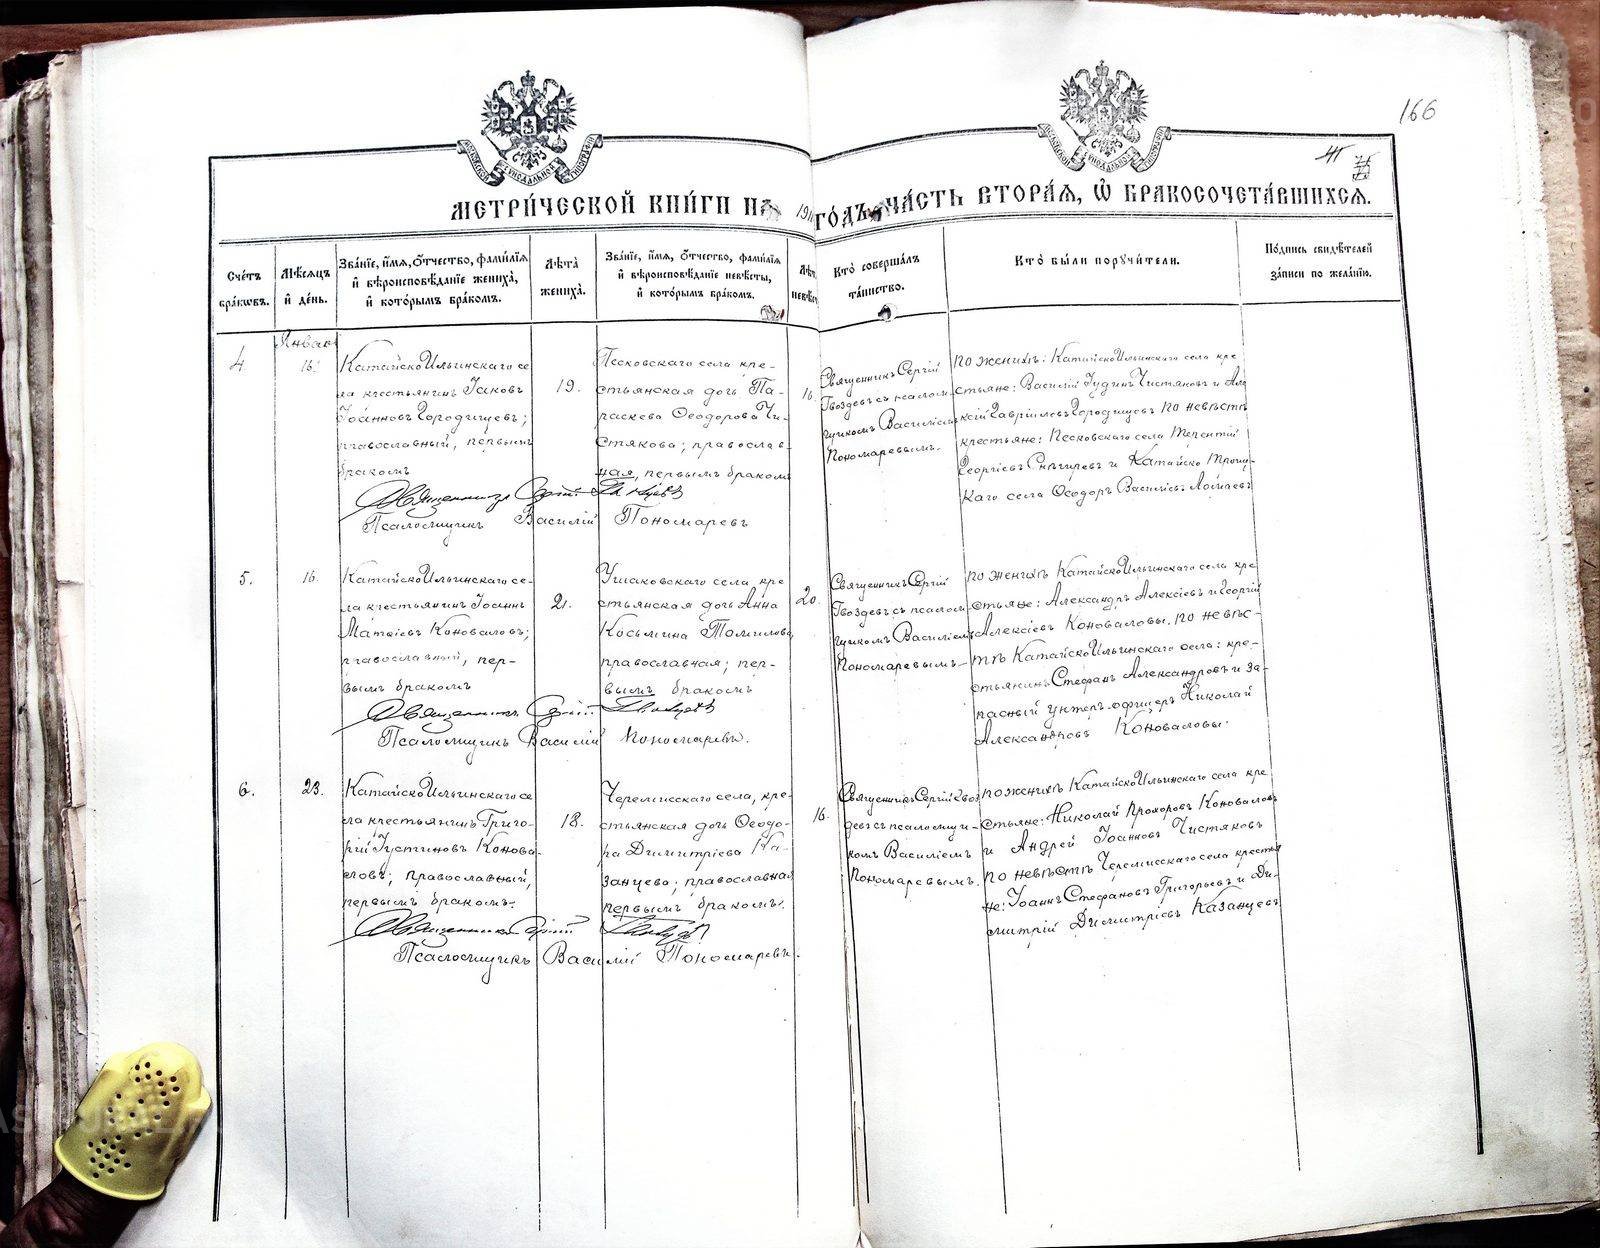 166
МОСКОВСКОЙ СѴНОДАЛЬНОЙ ТИПОГРАФІИ
МОСКОВСКОЙ СѴНОДАЛЬНОЙ ТИПОГРАФІИ
МЕТРИ́ЧЕСКОЙ КНИ́ГИ НА 191 ГО́ДЪ ЧА́СТЬ ВТОРА́Я, Ѽ БРАКОСОЧЕТА́ВШИХСЯ.
Сче́тъ
бра́ковъ.
Мѣ́сяцъ
и҆ де́нь.
Зва́нїе, и҆́мя, о҆́тчество, фами́лїя
и҆ вѣроисповѣ́данїе жениха̀,
и҆ кото́рымъ бра́комъ.
Лѣ́та
жениха̀.
Зва́нїе, и҆́мя, о҆́тчество, фами́лїя
и҆ вѣроисповѣ́данїе невѣ́сты,
и҆ кото́рымъ бра́комъ.
Лѣт
невѣст
Кто̀ соверша́лъ
та́инство.
Кто̀ бы́ли поручи́тели.
По́дпись свидѣ́телей
за́писи по жела́нїю.
Январь
4
16.
Катайско Ильинскаго се
ла крестьянинъ Іаковъ
Іоанновъ Городищевъ;
православный, первымъ
бракомъ
19.
Песковскаго села кре-
стьянская дочь Па-
раскева Ѳеодорова Чи-
стякова; православ-
ная, первымъ бракомъ
16.
Священникъ Сергій
Гвоздевъ съ псалом-
щикомъ Василіемъ
Пономаревымъ.
по женихѣ: Катайско Ильинскаго села кре
стьяне: Василій Іудинъ Чистяковъ и Але
ксій Гавріиловъ Городищевъ по невѣстѣ
крестьяне: Песковскаго села Терентій
Георгіевъ Снѣгиревъ и Катайско Троиц-
каго села Ѳеодоръ Василіевъ
Священникъ Сергій Гвоздевъ
Псаломщикъ Василій Пономаревъ
5.
16.
Катайско Ильинскаго се-
ла крестьянинъ Іоаннъ
Матѳіевъ Коноваловъ;
православный, пер-
вымъ бракомъ
21.
Ушаковскаго села, кре
стьянская дочь Анна
Косьмина Томилова,
православная; пер-
вымъ бракомъ
20.
Священникъ Сергій
Гвоздевъ съ псалом
щикомъ Василіемъ
Пономаревымъ
по женихѣ Катайско Ильинскаго села кре
стьяне: Александръ Алексіевъ и Георгій
Алексіевъ Коноваловы. по невѣс-
тѣ Катайско Ильинскаго села: кре-
стьянинъ Стефанъ Александровъ и за-
пасный унтеръ-офицеръ Николай
Александровъ Коноваловы.
Священникъ Сергій Гвоздевъ
Псаломщикъ Василій Пономаревъ.
6.
23.
Катайско Ильинскаго се
ла крестьянинъ Григо-
рій Іустиновъ Конова-
ловъ; православный,
первымъ бракомъ.
18.
Черемисскаго села, кре-
стьянская дочь Ѳеодо-
ра Димитріева Ка-
занцева; православная
первымъ бракомъ.
16.
Священникъ Сергій Гвоз
девъ съ псаломщи-
комъ Василіемъ
Пономаревымъ.
по женихѣ Катайско Ильинскаго села кре
стьяне: Николай Прохоровъ Коноваловъ
и Андрей Іоанновъ Чистяковъ
по невѣстѣ Черемисскаго села крестья
не: Іоаннъ Стефановъ Григорьевъ и Ди-
митрій Димитріевъ Казанцевъ
Священникъ Сергій Гвоздевъ
Псаломщикъ Василій Пономаревъ.